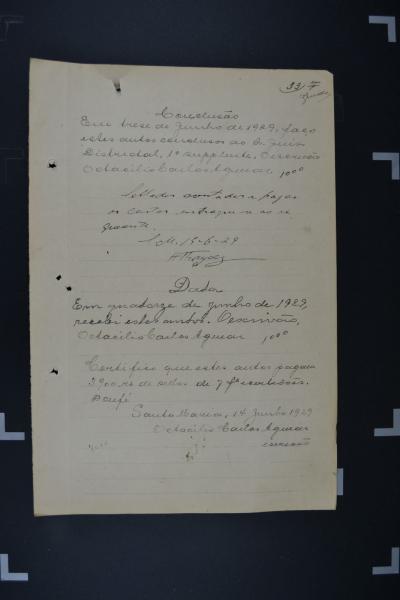 33
Conclusão
Em treze de Junho de 1929, faço
estes autos conclusos ao Dr. Juiz
Districtal, 1º supplente. O escrivão
Octacilio Carlos Aguiar 1000
Sellados, contados e pagas
as custas entregue-se ao re
querente.
S.M. 13-6-29
Data
Em quatorze de Junho de 1929,
recebi estes autos. O escrivão,
Octacilio Carlos Aguiar 1000
Certifico que estes autos pagam
de sellos de 7 fs
Dou fé
Santa Maria, 14 Junho 1929
Octacilio Carlos Aguiar
escrivão